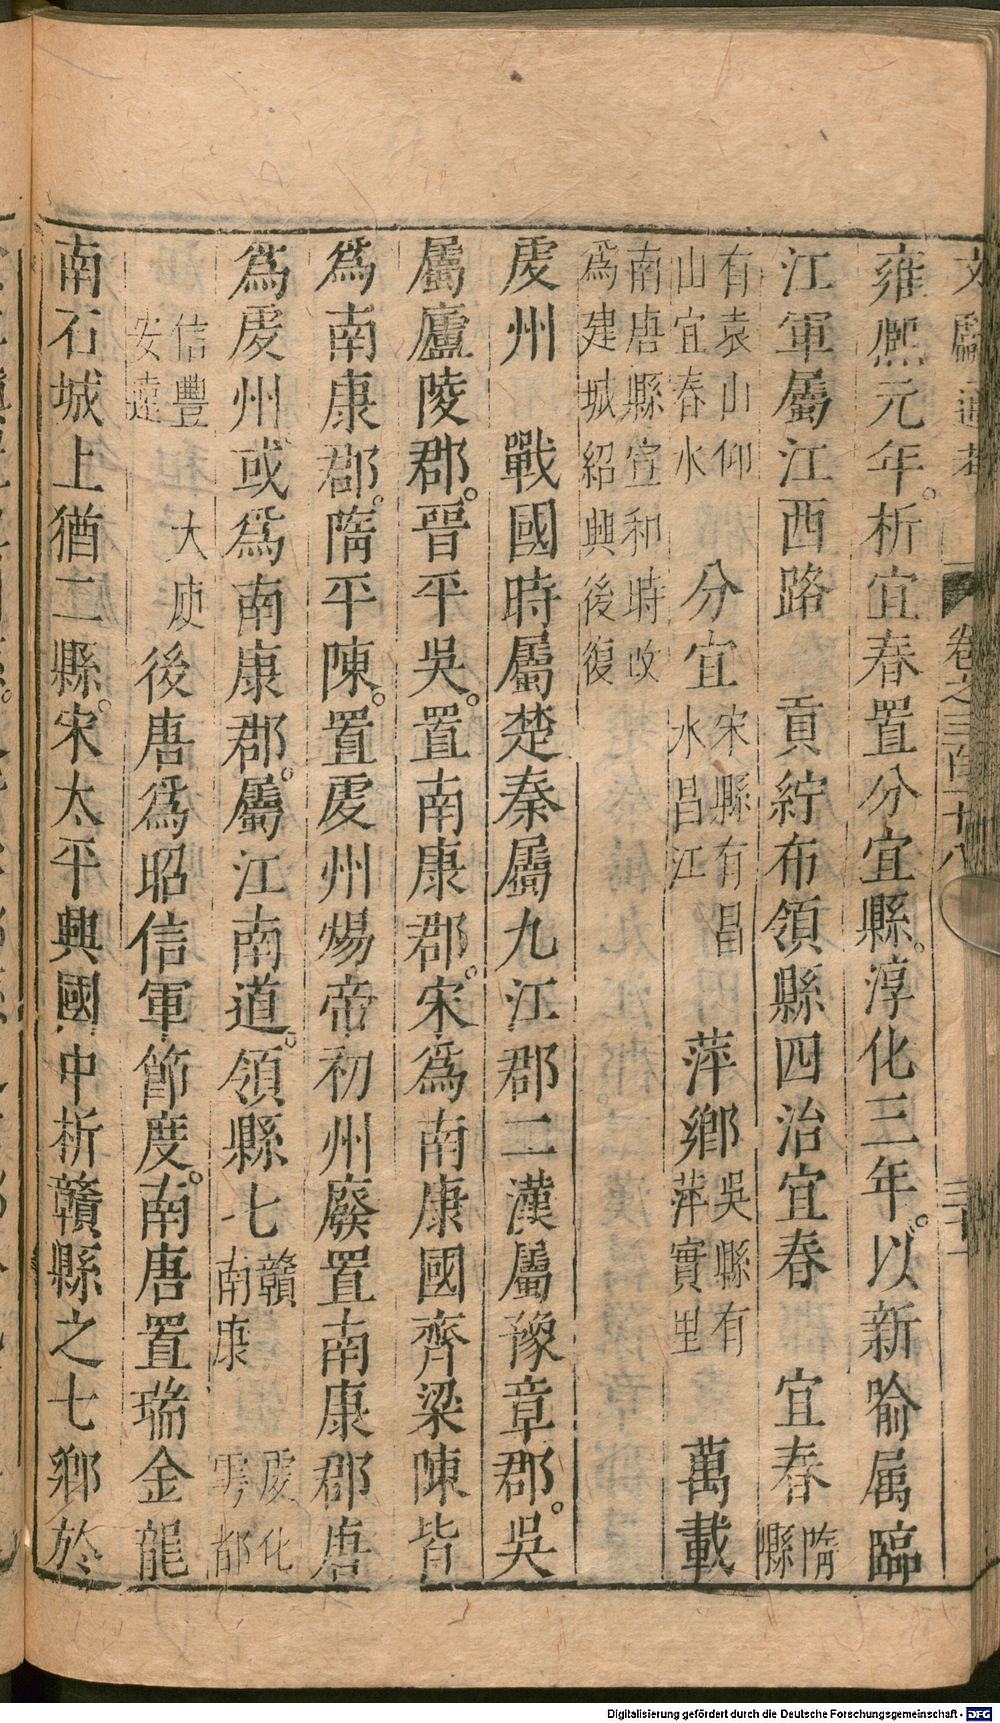 文獻通考 卷之三百十八 三十一
雍熙元年。析宜春置分宜縣。淳化三年。以新喻属臨
江軍屬江西路 貢紵布領縣四治宜春 宜春隋縣
有袁山仰山宜春水 分宜宋縣有昌水昌江 萍鄉吳縣有萍實里 萬載
南唐縣宣和時改為建城紹興後復
虔州 戰國時屬楚秦屬九江郡二漢屬豫章郡。吳
屬廬陵郡。晉平吳。置南康郡。宋為南康國齊梁陳皆
為南康郡。隋平陳。置虔州煬帝初州廢置南康郡唐
為虔州或為南康郡。屬江南道。領縣七贛 南康 虔化 雩都
信豐 安遠 大庾 後唐為昭信軍節度。南唐置瑞金龍
南石城上猶二縣。宋太平興國中析贛縣之七鄉於
Digitalisierung gefördert durch die Deutsche Forschungsgemeinschaft - DFG